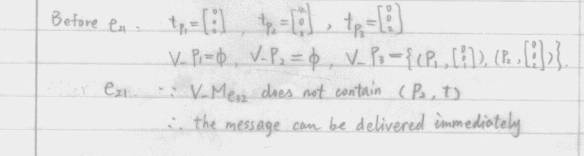 Before e₂₁. t_P₁=[0 0 0], t_P₂=[0 0], t_P₃=[0 0]
V_P₁=ϕ, V_P₂=ϕ, V_P₃={(P₁,[]), (P₂,[])}.
e₂₁. ∵ V_Me₃₂ does not contain (P₂, t)
∴ the message can be delivered immediately